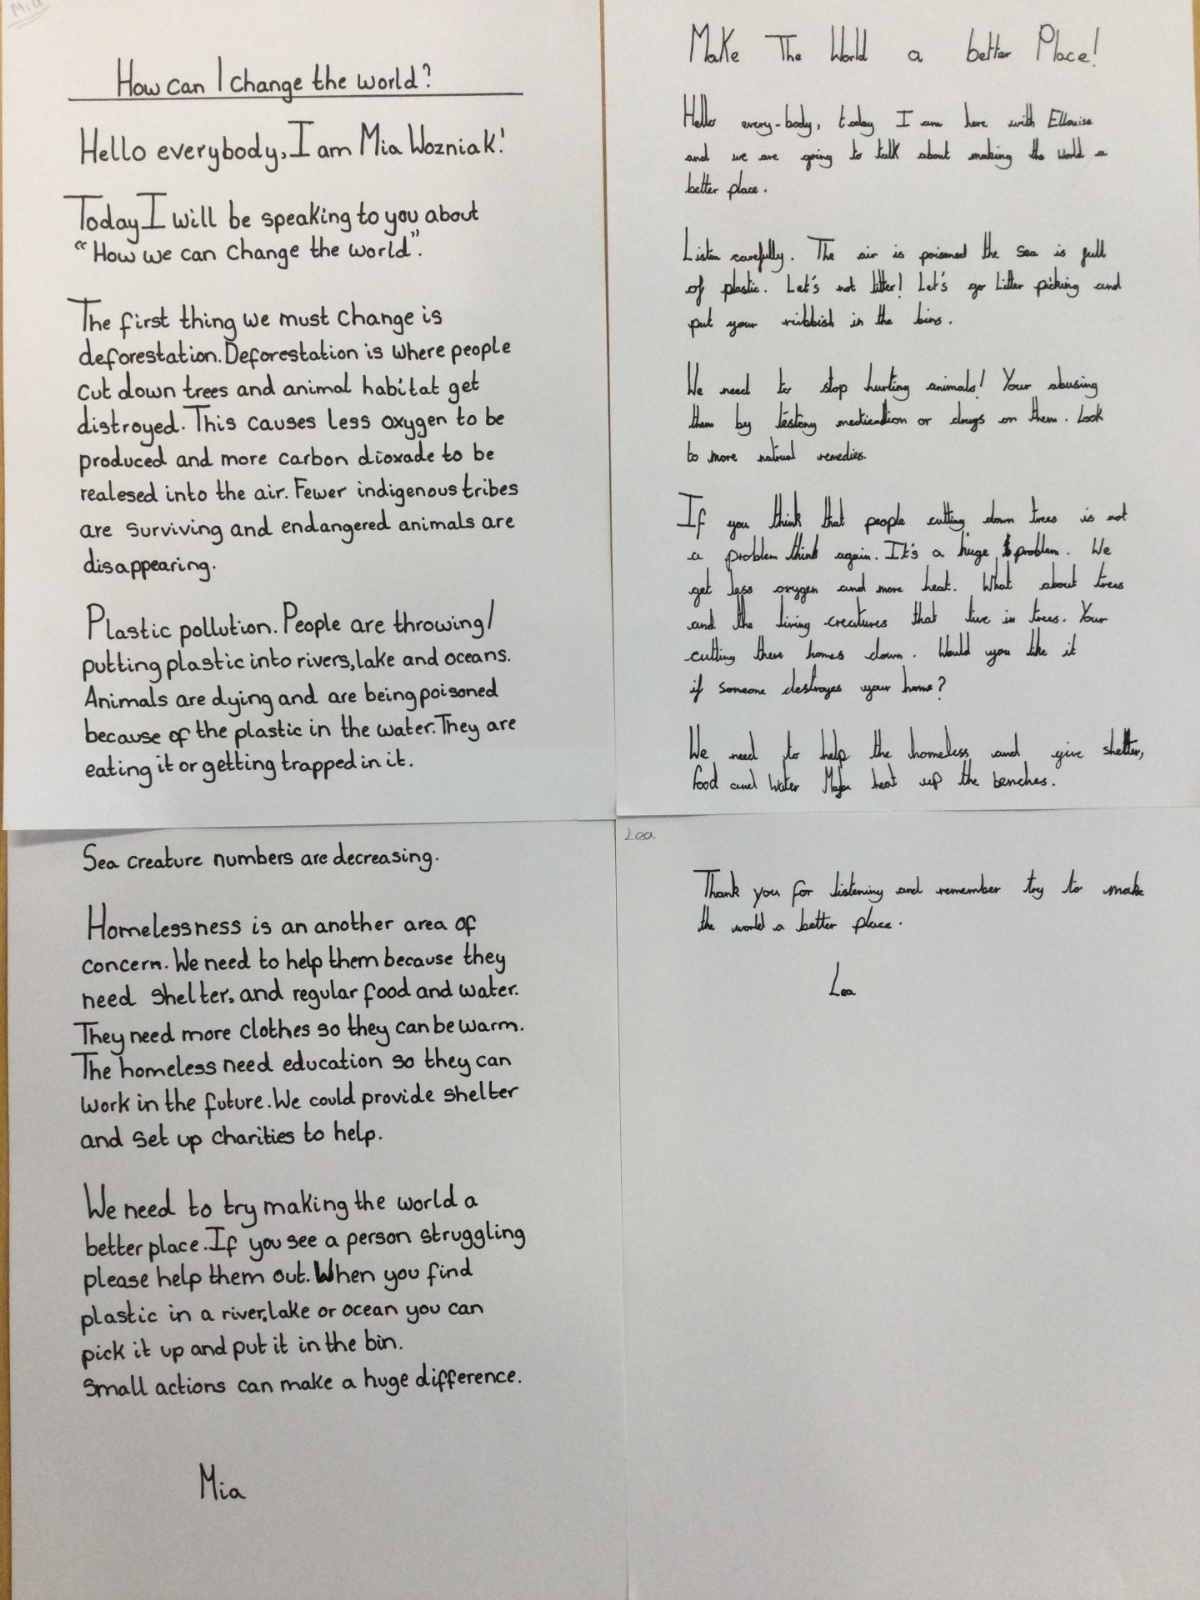 Mia
How can I change the world?
Hello everybody, I am Mia Wozniak!
Today I will be speaking to you about
"How we can change the world".
The first thing we must change is
deforestation. Deforestation is where people
cut down trees and animal habitat get
distroyed. This causes less oxygen to be
produced and more carbon dioxade to be
realesed into the air. Fewer indigenous tribes
are surviving and endangered animals are
disappearing.
Plastic pollution. People are throwing/
putting plastic into rivers, lake and oceans.
Animals are dying and are being poisoned
because of the plastic in the water. They are
eating it or getting trapped in it.
Sea creature numbers are decreasing.
Homelessness is an another area of
concern. We need to help them because they
need shelter, and regular food and water.
They need more clothes so they can be warm.
The homeless need education so they can
work in the future. We could provide shelter
and set up charities to help.
We need to try making the world a
better place. If you see a person struggling
please help them out. When you find
plastic in a river, lake or ocean you can
pick it up and put it in the bin.
Small actions can make a huge difference.
Mia
Make The World a better Place!
Hello every-body, today I am here with Ellouise
and we are going to talk about making the world a
better place.
Listen carefully. The air is poisoned the sea is full
of plastic. Let's not litter! Let's go Litter picking and
put your rubbish in the bins.
We need to stop hurting animals! Your abusing
them by testing medication or drugs on them. Look
to more natrual remedies.
If you think that people cutting down trees is not
a problem think again. It's a huge problem. We
get less oxygen and more heat. What about trees
and the living creatures that live in trees. Your
cutting there homes down. Would you like it
if someone destroyes your home?
We need to help the homeless and give shelter,
food and water Maybe heat up the benches.
Lea
Thank you for listening and remember try to make
the world a better place.
Lea